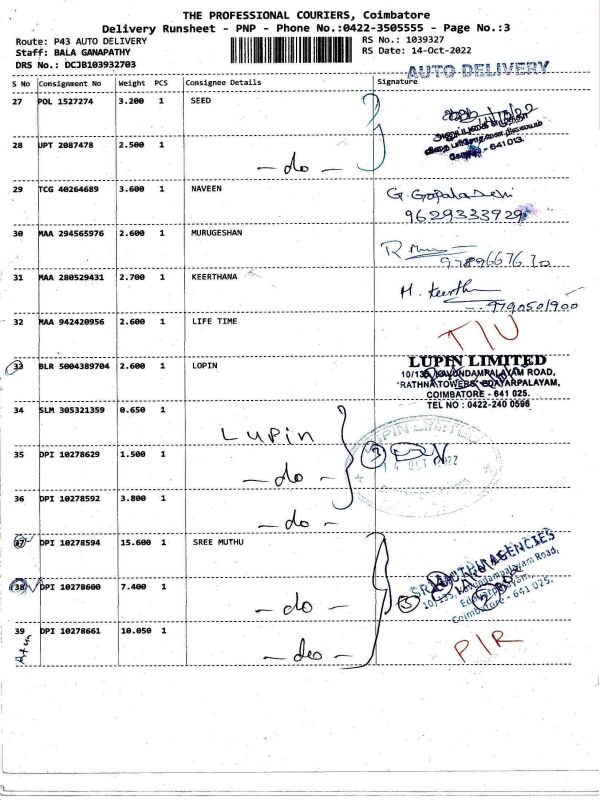 THE PROFESSIONAL COURIERS, Coimbatore
Delivery Runsheet - PNP - Phone No.:0422-3505555 - Page No.:3
Route: P43 AUTO DELIVERY
Staff: BALA GANAPATHY
DRS No.: DCJB103932703
RS No.: 1039327
RS Date: 14-Oct-2022
AUTO DELIVERY
S No Consignment No Weight PCS Consignee Details Signature
27 POL 1527274 3.200 1 SEED
அனுப்புகை எழுதா
விதை பரிசோதனை நிலையம்
கோவை - 641013.
28 UPT 2087478 2.500 1 - do -
29 TCG 40264689 3.600 1 NAVEEN
G. Gopala Devi
9629333729
30 MAA 294565976 2.600 1 MURUGESHAN
9789667670
31 MAA 280529431 2.700 1 KEERTHANA
M. Keerth
9790501900
32 MAA 942420956 2.600 1 LIFE TIME
33 BLR 5004389704 2.600 1 LOPIN
LUPIN LIMITED
10/135, KAVUNDAMPALAYAM ROAD,
"RATHNA TOWERS" EDAYARPALAYAM,
COIMBATORE - 641 025.
TEL NO : 0422-240 0596
34 SLM 305321359 0.650 1 Lupin
LUPIN LIMITED
35 DPI 10278629 1.500 1 - do -
3
14 OCT 2022
36 DPI 10278592 3.800 1 - do -
37 DPI 10278594 15.600 1 SREE MUTHU
38 DPI 10278600 7.400 1 - do -
3
39 DPI 10278661 10.050 1 - do -
P/R